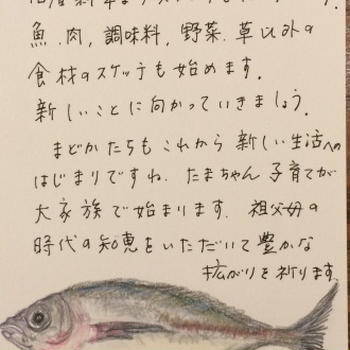 魚.肉,調味料,野菜.草以外の
食材のスケッチも始めます.
新しいことに向かっていきましょう.
まどかたちもこれから新しい生活への
はじまりですね.たまちゃん子育てが
大家族で始まります.祖父母の
時代の知恵をいただいて豊かな
拡がりを祈ります.